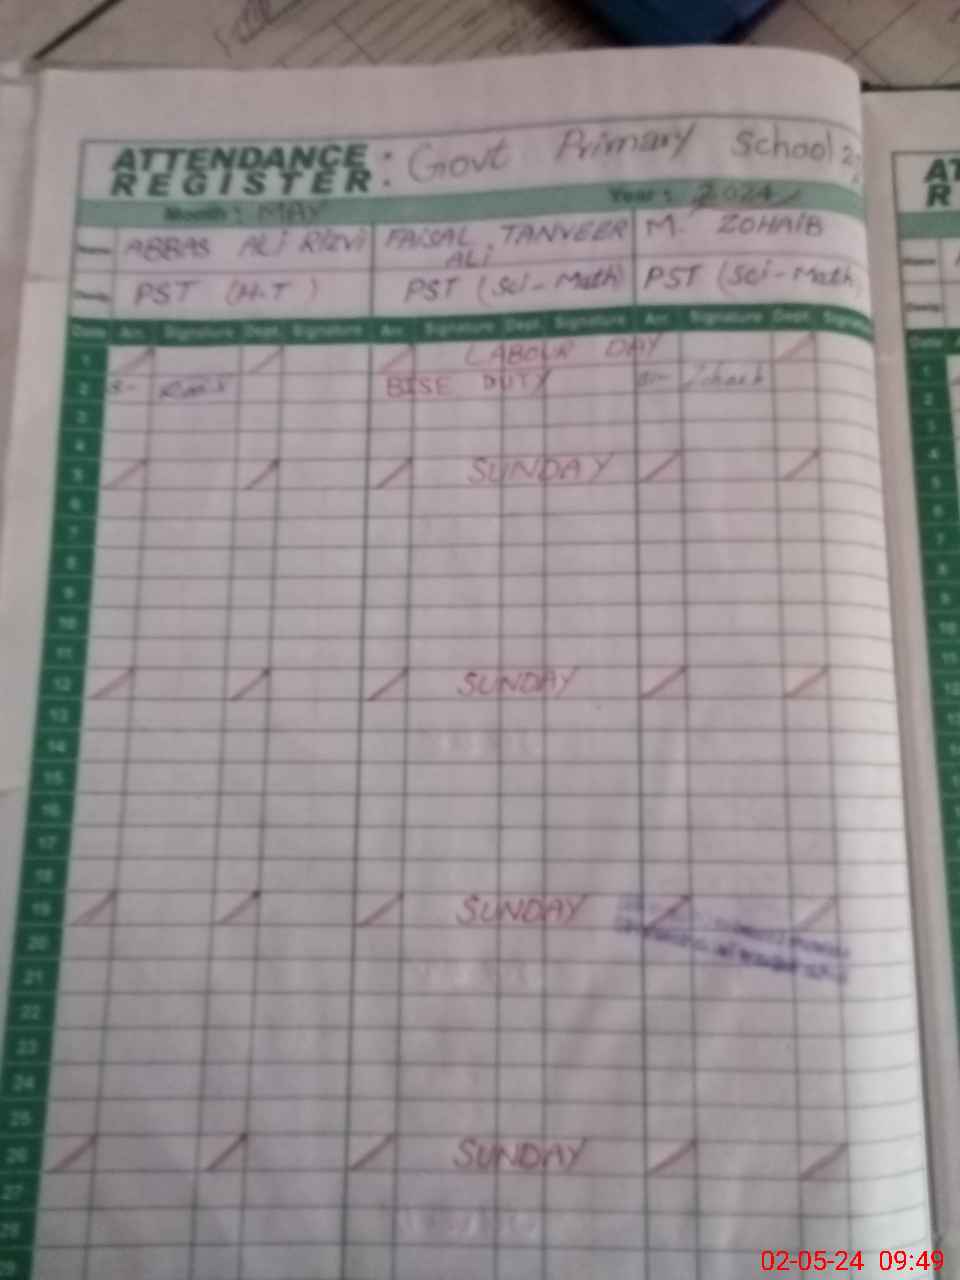 ATTENDANCE REGISTER : Govt Primary School
Month : MAY Year : 2024
Name ABBAS ALi Rizvi FAISAL TANVEER ALi M. ZOHAIB
PST (H.T) PST (Sci-Math) PST (Sci-Math)
Date Arr. Signature Dept. Signature Arr. Signature Dept. Signature Arr. Signature Dept.
1 LABOUR DAY
2 BISE DUTY
3
4
5 SUNDAY
6
7
8
9
10
11
12 SUNDAY
13
14
15
16
17
18
19 SUNDAY
20
21
22
23
24
25
26 SUNDAY
27
28
29
AT
R
Date
1
2
3
4
5
6
7
8
9
10
11
12
13
02-05-24 09:49